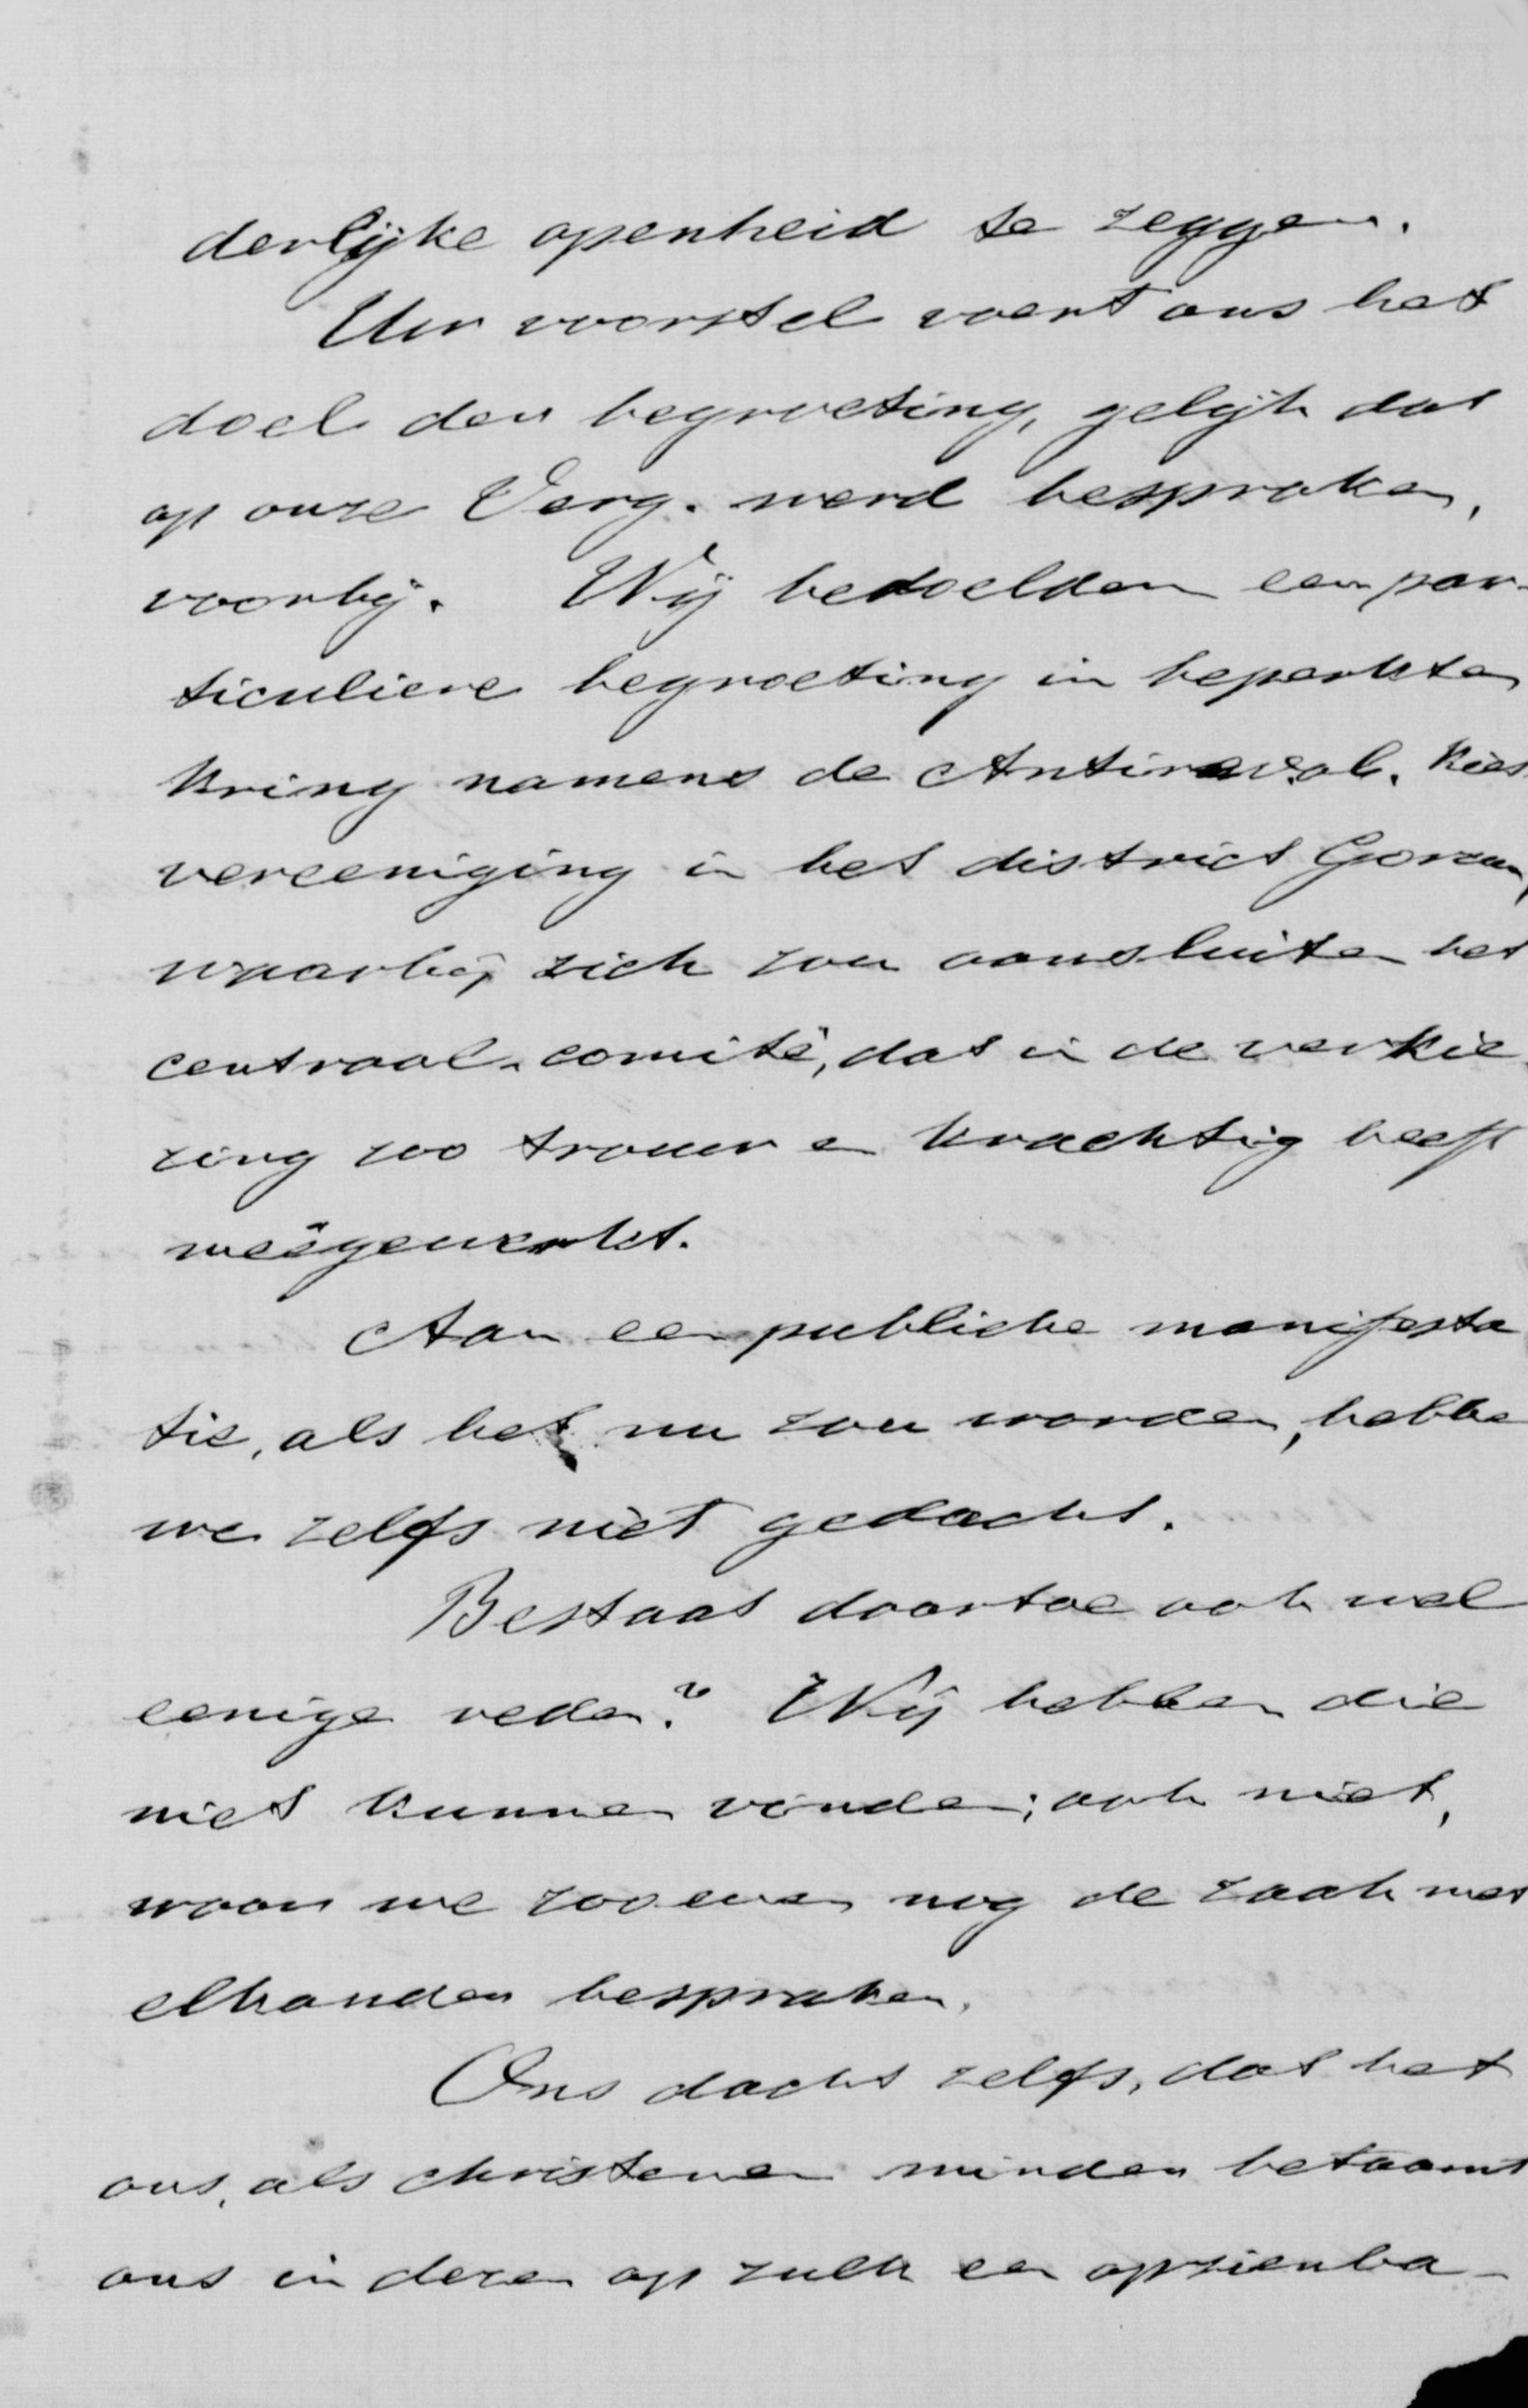 derlijke openheid te zeggen.
Uw voorstel voert ons het
doel der begroeting, gelijk dat
op onze Verg. werd besproken,
voorbij. Wij bedoelden een par-
ticuliere begroeting in beperkten
kring namens de Antirevol. Kies
vereeniging in het district Gorcum,
waarbij zich zou aansluiten het
centraal-comité, dat in de verkie
zing zoo trouw en krachtig heeft
meêgewerkt.
Aan een publieke manifesta
tie, als het nu zou worden, hebben
we zelfs niet gedacht.
Bestaat daartoe ook wel
eenige reden? Wij hebben die
niet kunnen vinden; ook niet,
waar we zooeven nog de zaak met
elkander bespraken.
Ons dacht zelfs, dat het
ons, als christenen minder betaamt
ons in dezen op zulk een opzienba-